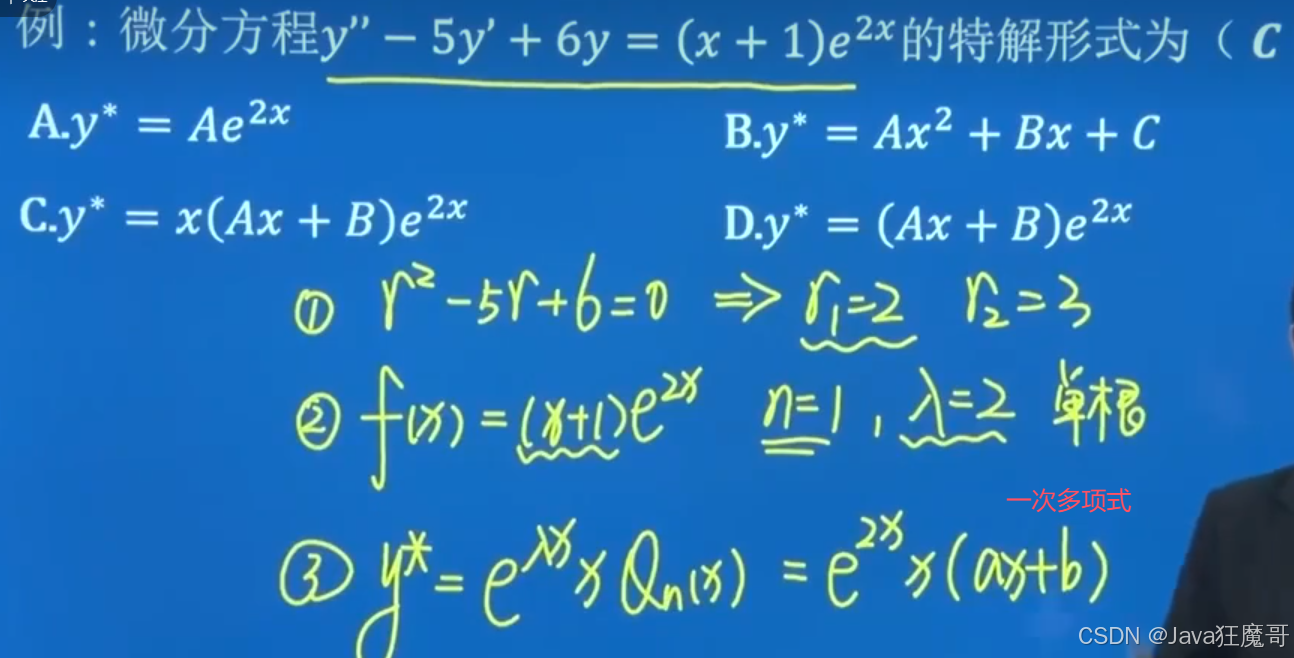 例：微分方程y″ − 5y′ + 6y = (x + 1)e^{2x}的特解形式为（ C
A.y* = Ae^{2x}
B.y* = Ax² + Bx + C
C.y* = x(Ax + B)e^{2x}
D.y* = (Ax + B)e^{2x}
① r² − 5r + 6 = 0 ⇒ r₁=2 r₂=3
② f(x) = (x+1)e^{2x} n=1 , λ=2 单根
一次多项式
③ y* = e^{λx} x Qₙ(x) = e^{2x} x(ax+b)
CSDN @Java狂魔哥